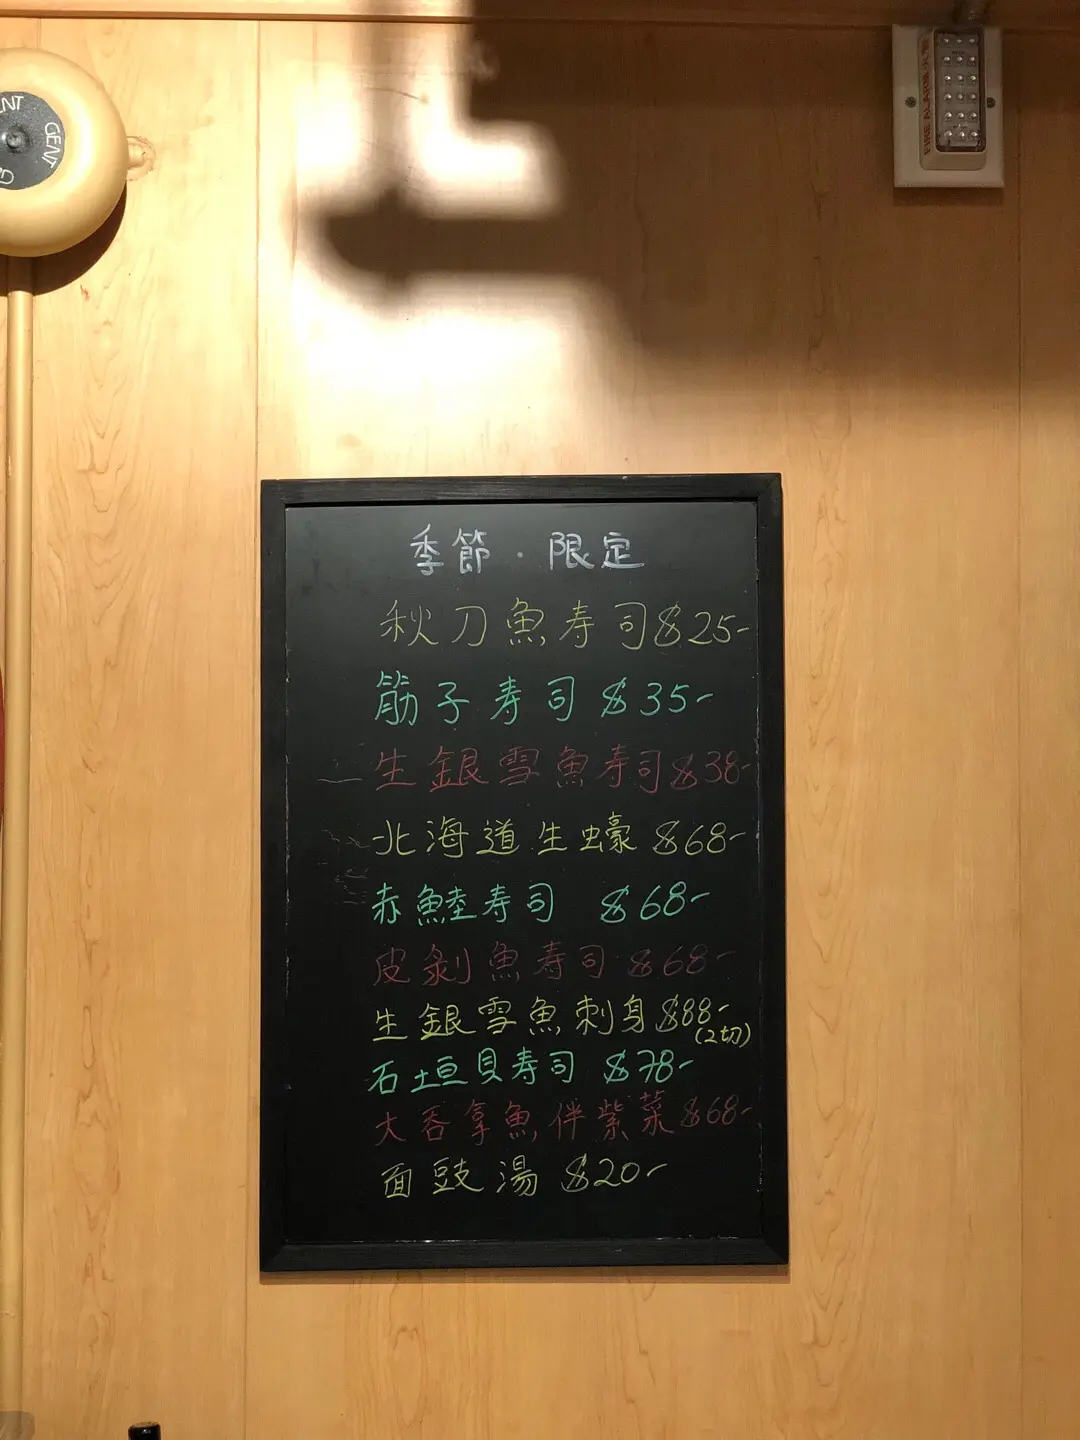 GENT
FIRE ALARM 火警
季節・限定
秋刀魚寿司$25-
筋子寿司 $35-
生銀雪魚寿司$38-
北海道生蠔 $68-
赤鯥寿司 $68-
皮剝魚寿司 $68-
生銀雪魚刺身 $88-
(2切)
石垣貝寿司 $78-
大吞拿魚伴紫菜 $68-
面豉湯 $20-